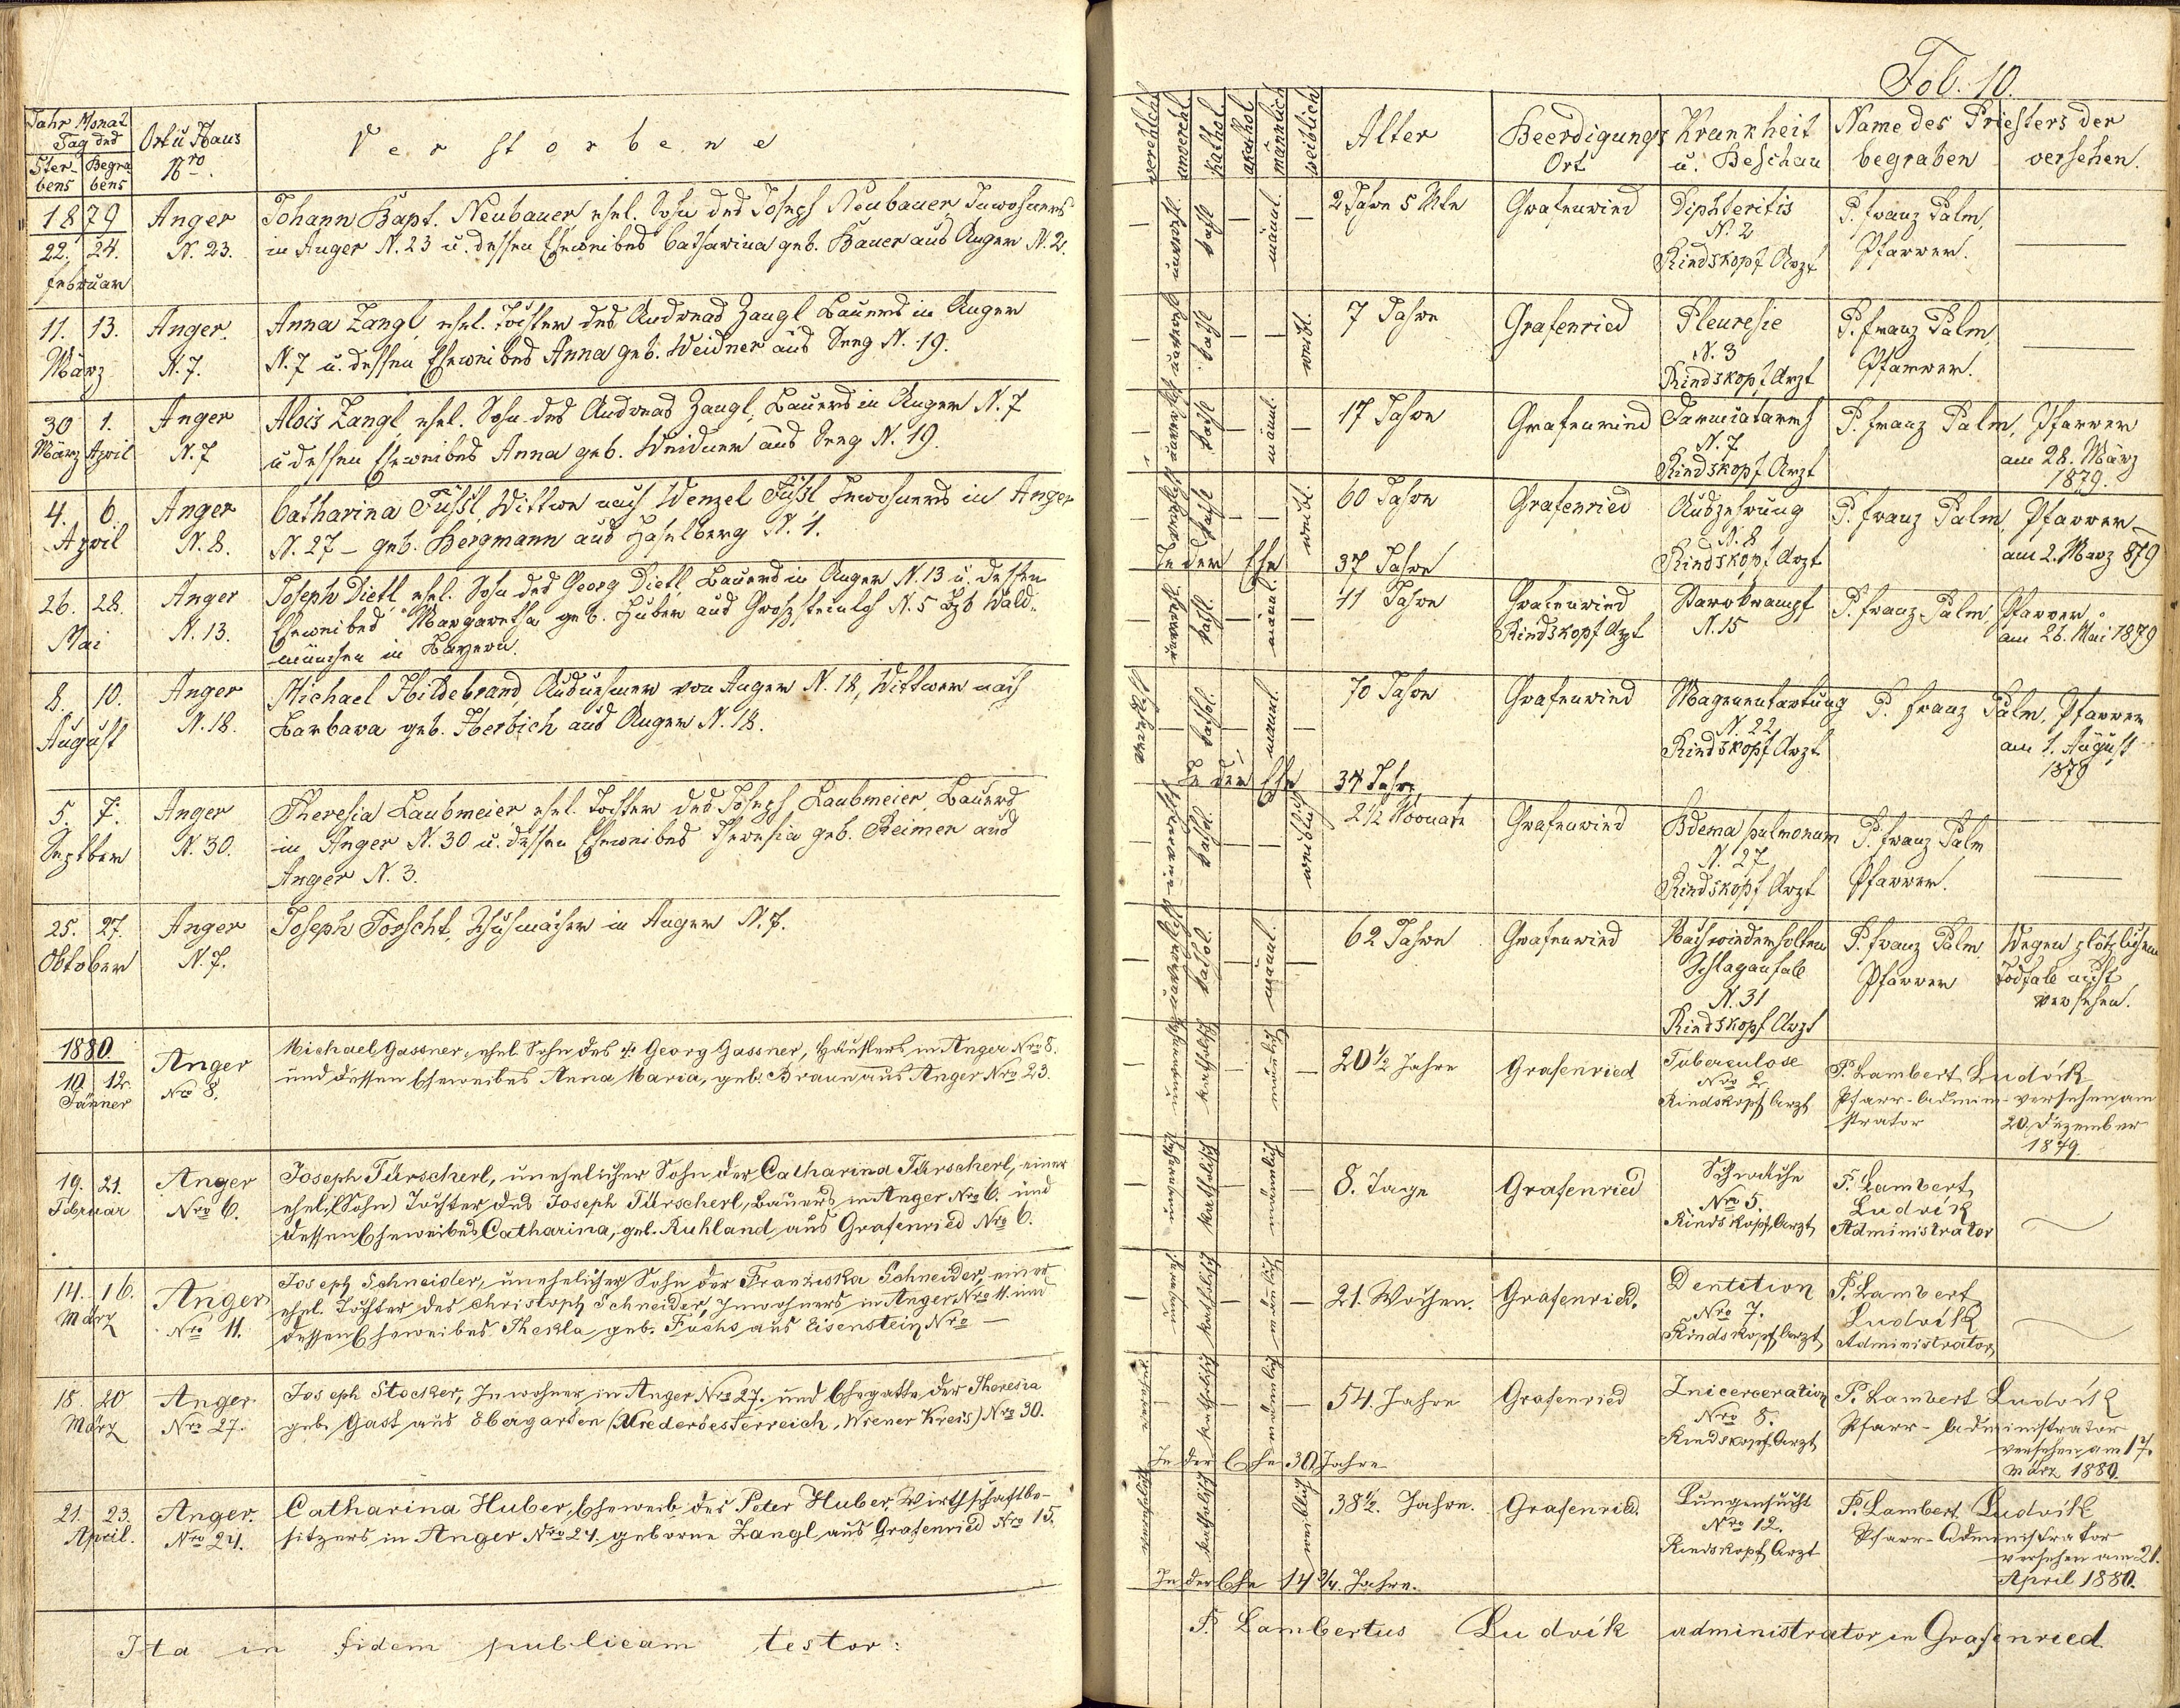 Fol. 10.
Jahr Monat
Tag des
Sterbens
Begrabens
Ort u Haus
Nro.
Verstorbene
verehlcht
unverehl
kathol.
akathol
männlich
weiblich
Alter
Beerdigungs
Ort
Krankheit
u. Beschau
Name des Priesters der
begraben
versehen.
1879
22. 24.
Februar
Anger
N. 23.
Johann Bapt. Neubauer ehel. Sohn des Joseph Neubauer, Inwohners
in Anger N. 23 u. dessen Eheweibes Catharina geb. Bauer aus Anger N. 2.
unverehl.
kathl
männl.
2 Jahre 5 Mte
Grafenried
Diphteritis
N. 2
Rindskopf Arzt
P. Franz Palm,
Pfarrer.
11. 13.
März
Anger.
N. 7.
Anna Zangl, ehel. Tochter des Andreas Zangl Bauers in Anger
N. 7 u. dessen Eheweibes Anna geb. Weidner aus Seeg N. 19.
unverehl
kathl
weibl.
7 Jahre
Grafenried
Pleuresie
N. 3
Rindskopf Arzt
P. Franz Palm,
Pfarrer.
30 1.
März April
Anger
N. 7
Alois Zangl, ehel. Sohn des Andreas Zangl, Bauers in Anger N. 7
u dessen Eheweibes Anna geb. Weidner aus Seeg N. 19.
kathl
männl.
17 Jahre
Grafenried
Darmkatarrh
N. 7
Rindskopf Arzt
P. Franz Palm, Pfarrer
am 28. März
1879.
4. 6.
April
Anger
N. 8.
Catharina Füßl, Wittwe nach Wenzel Füßl Inwohners in Anger
N. 27 – geb. Bergmann aus Haselberg N. 1.
kathl
weibl.
60 Jahre
In der Ehe 37 Jahre
Grafenried
Auszehrung
N. 8
Rindskopf Arzt
P. Franz Palm Pfarrer
am 2. März 879
26. 28.
Mai
Anger
N. 13.
Joseph Dietl ehel. Sohn des Georg Dietl, Bauers in Anger N. 13 u. dessen
Eheweibes Margaretha geb. Huber aus N. 5 Bzk Wald-
münchen in Bayern.
unverehl.
kathl.
männl.
41 Jahre
Grafenried
Rindskopf Arzt
N. 15
P. Franz Palm, Pfarrer.
am 26. Mai 1879
8. 10.
August
Anger
N. 18.
Michael Hildebrand, Ausnehmer von Anger N. 18, Wittwer nach
Barbara geb. Herbich aus Anger N. 18.
verehlt
kathol.
männl.
70 Jahre
In der Ehe 34 Jahr,
Grafenried
Magenentartung
N. 22
Rindskopf Arzt
P. Franz Palm, Pfarrer
am 1. August
1879
5. 7.
Septber
Anger
N. 30.
Theresia Laubmeier ehel. Tochter des Joseph Laubmeier, Bauers
in Anger N. 30 u. dessen Eheweibes Theresia geb. Reimer aus
Anger N. 3.
kathol.
weiblich
2 1/2 Monate
Grafenried
Ödema pulmonum
N. 27
Rindskopf Arzt
P. Franz Palm
Pfarrer.
25. 27.
Oktober
Anger
N. 7.
Joseph Forscht, Schuhmacher in Anger N. 7.
unverehl
kathol.
männl.
62 Jahre
Grafenried
Nach wiederholten
Schlaganfall
N. 31
Rindskopf Arzt
P. Franz Palm,
Pfarrer
Wegen plötzlichem
Todfall nicht
versehen.
1880.
10. 12.
Jänner
Anger
Nro 8.
Michael Gassner, ehel. Sohn des † Georg Gassner, Häuslers in Anger Nro 8.
und dessen Eheweibes Anna Maria, geb. Braun aus Anger Nro 23.
katholisch
männlich
20 1/2 Jahre
Grafenried
Tuberculose
Nro 2
Rindskopf Arzt
P. Lambert Ludvík
Pfarr-Admini-
strator
versehen am
20. Dezember
1879
19. 21.
Februar
Anger
Nro 6.
Joseph Türscherl, unehelicher Sohn der Catharina Türscherl, einer
ehel. (Sohn) Tochter des Joseph Türscherl, Bauers in Anger Nro 6. und
dessen Eheweibes Catharina, geb. Ruhland aus Grafenried Nro 6.
katholisch
männlich
8. Tage
Grafenried
Schwäche
Nro 5.
Rindskopf Arzt
P. Lambert
Ludvík
Administrator
14. 16.
März
Anger
Nro 11.
Joseph Schneider, unehelicher Sohn der Franziska Schneider, einer
ehel. Tochter des Christoph Schneider, Inwohners in Anger Nro 11. und
dessen Eheweibes Thekla geb. Fuchs aus Eisenstein Nro –
katholisch
männlich
21. Wochen.
Grafenried.
Dentition
Nro 7.
Rindskopf Arzt
P. Lambert
Ludvík
Administrator
18. 20
März
Anger
Nro 27.
Joseph Stocker, Inwohner in Anger Nro 27. und Ehegatte der Theresia
geb. Gast aus Ebergarten (Niederoesterreich, Wiener Kreis) Nro 30.
katholisch
männlich
54. Jahre
In der Ehe 30 Jahre
Grafenried
Inicerceration
Nro 8.
Rindskopf Arzt
P. Lambert Ludvík
Pfarr-Administrator
versehen am 17.
März 1880.
21. 23.
April.
Anger.
Nro 24.
Catharina Huber, Eheweib des Peter Huber, Wirthschaftbe-
sitzers in Anger Nro 24. geborne Zangl aus Grafenried Nro 15.
katholisch
weiblich
38 1/2. Jahre.
In der Ehe 14 3/4. Jahre.
Grafenried.
Lungensucht
Nro 12.
Rindskopf Arzt
P. Lambert Ludvík
Pfarr-Administrator
versehen am 21.
April 1880.
Ita in fidem publicam testor:
P. Lambertus Ludvík administrator in Grafenried.